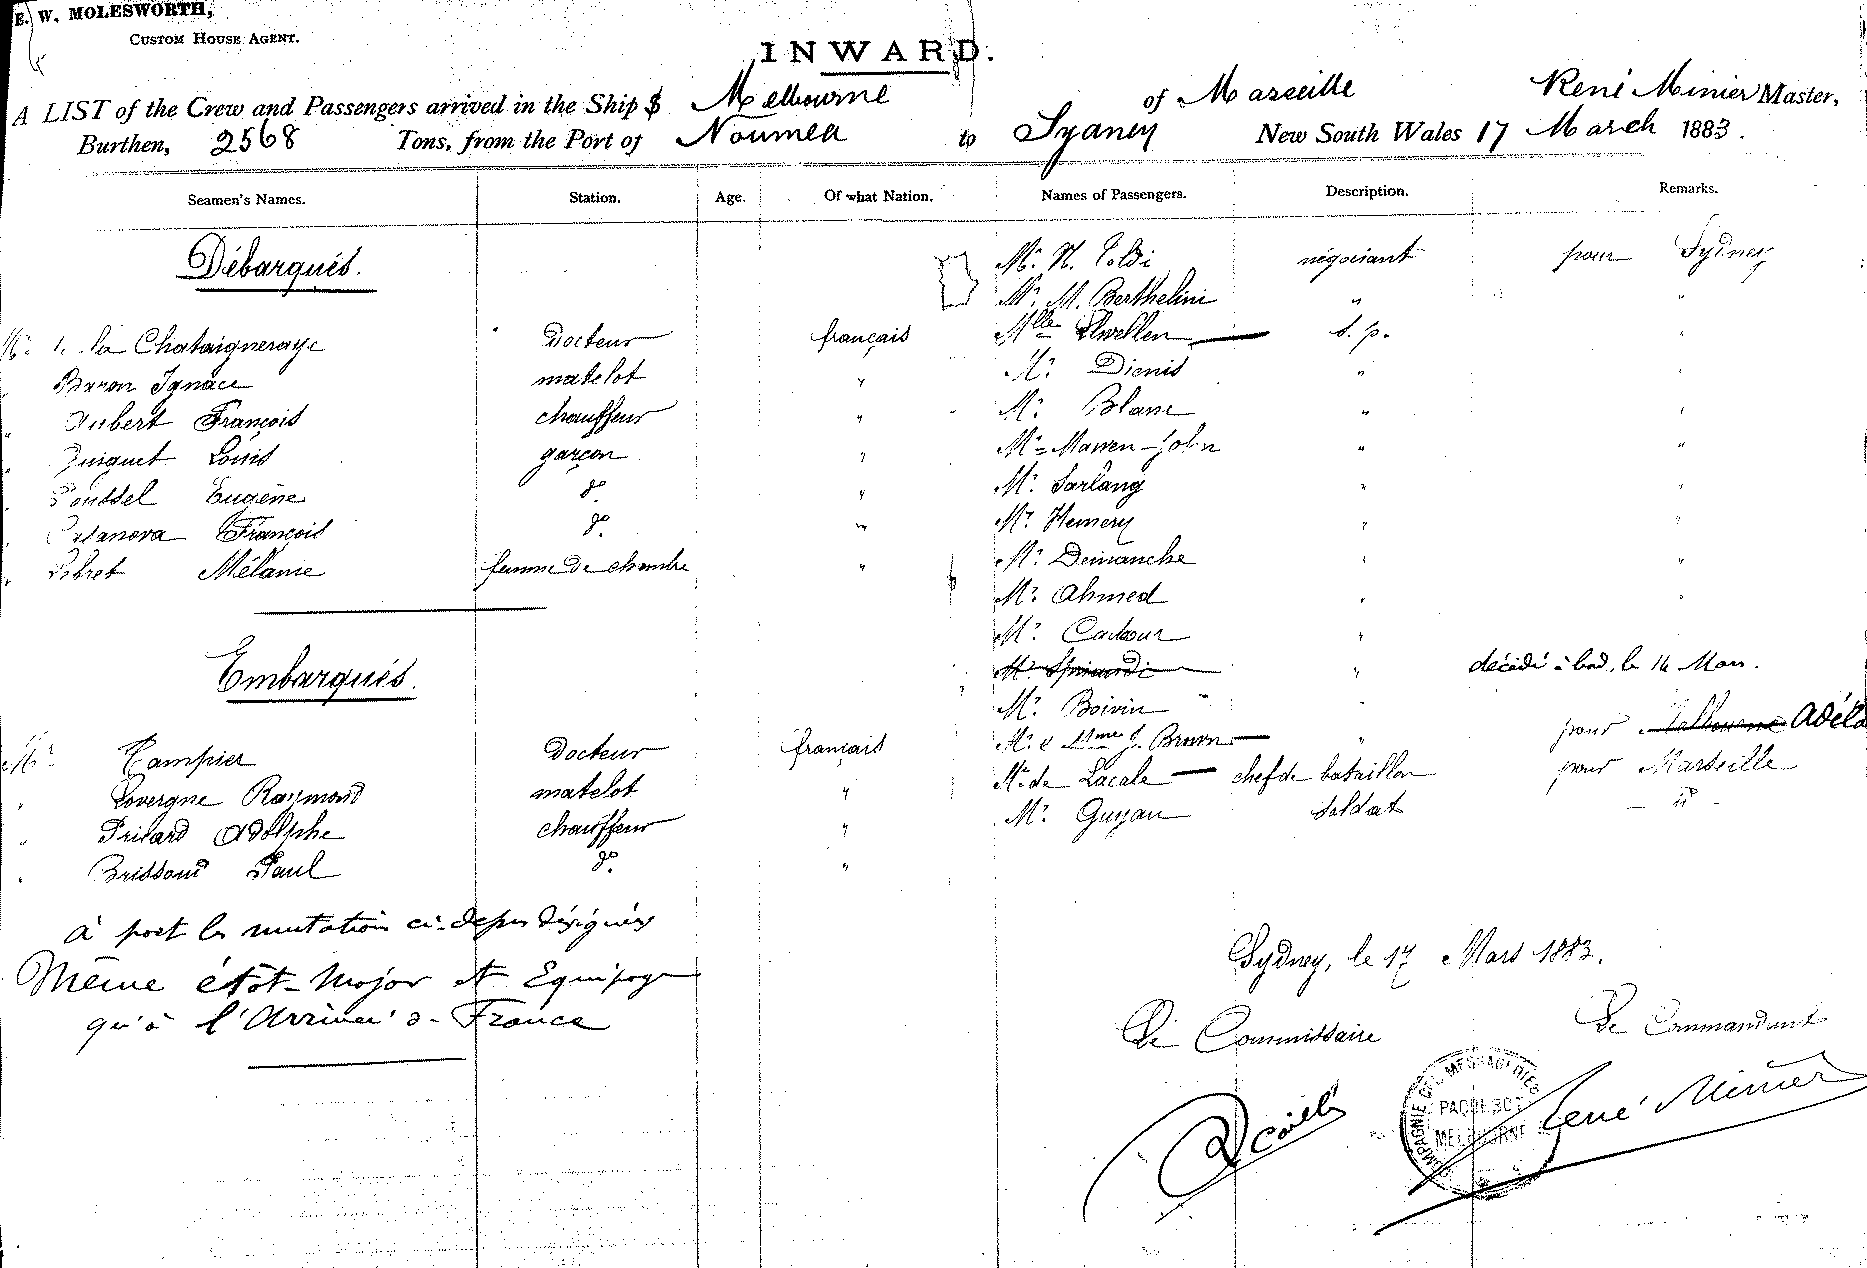 E. W. MOLESWORTH,
CUSTOM HOUSE AGENT.
INWARD.
A LIST of the Crew and Passengers arrived in the Ship S Melbourne of Marseille René Minier Master,
Burthen, 2568 Tons, from the Port of Noumea to Sydney New South Wales 17 March 1883.
Seamen's Names. Station. Age. Of what Nation. Names of Passengers. Description. Remarks.
Débarqués.
la Chataigneraye Docteur français
Baron Ignace matelot "
Aubert François chauffeur "
Guiguet Louis garçon "
Poussel Eugène do "
Casanova François do "
Libret Mélanie femme de chambre "
Embarqués.
Mr Campier Docteur français
" Lovergne Raymond matelot "
" Prilard Adolphe chauffeur "
" Brissaud Paul do "
à part les mutations ci-dessus désignées
Même état-Major et Equipage
qu'à l'Arrivée de France
Mr. N. Poldi négociant pour Sydney
Mr. M. Berthelini " "
Mlle Llwellen s. p. "
Mr. Dienis " "
Mr. Blanc " "
Mr. Mawen-John " "
Mr. Sarlang " "
Mr. Hemery " "
Mr. Demanche " "
Mr. Ahmed " "
Mr. Cadour "
Mr. " décédé à bord, le 14 Mars.
Mr. Boivin "
Mr. & Mme J. Brown " pour Melbourne Adéla
Mr. de Lacale chef de bataillon pour Marseille
Mr. Guyau soldat - do -
Sydney, le 17 Mars 1883.
Le Commissaire Le Commandant
René Minier
COMPAGNIE DES MESSAGERIES
PAQUEBOT
MELBOURNE